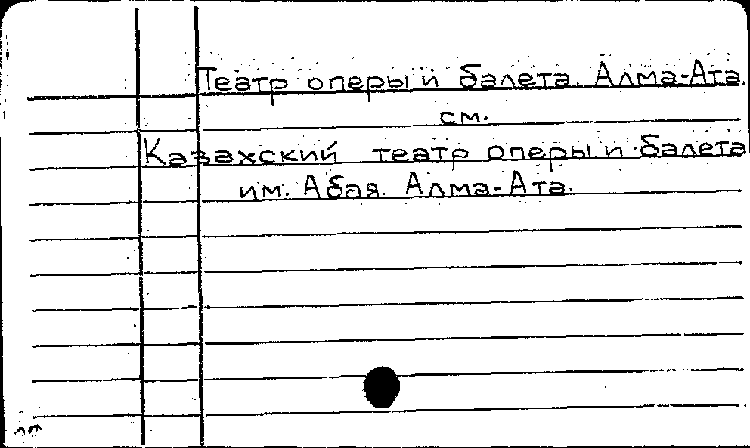 Театр оперы и балета. Алма-Ата.
см.
Казахский театр оперы и балета
им. Абая. Алма-Ата.